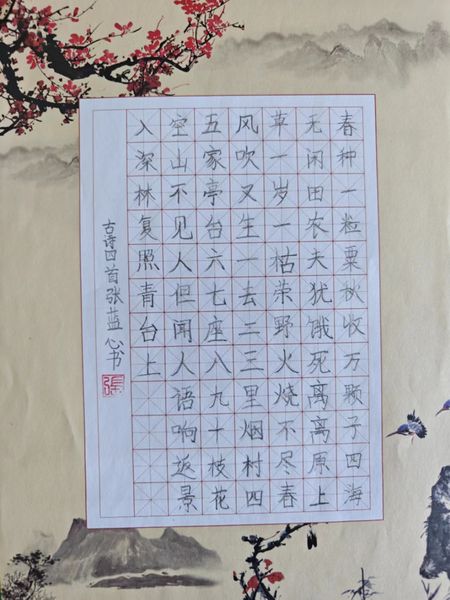 春种一粒粟秋收万颗子四海
无闲田农夫犹饿死离离原上
草一岁一枯荣野火烧不尽春
风吹又生一去二三里烟村四
五家亭台六七座八九十枝花
空山不见人但闻人语响返景
入深林复照青台上
古诗四首张蓝心书
張